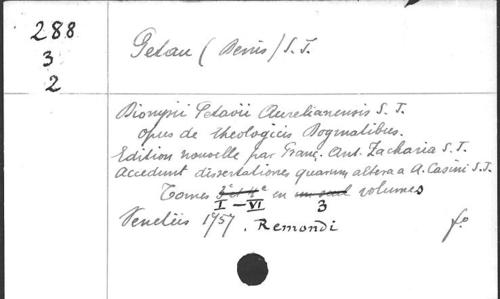 288
3
2
Petau (Denis) S. J.
Dionysii Petavii Aurelianensis S. J.
opus de theologicis Dogmatibus.
Edition nouvelle par Franç. Ant. Zacharia S. J.
Accedunt dissertationes quarum altera a A. Casini S. J.
Tomes I – VI en 3 volumes
Venetiis 1757. Remondi fo